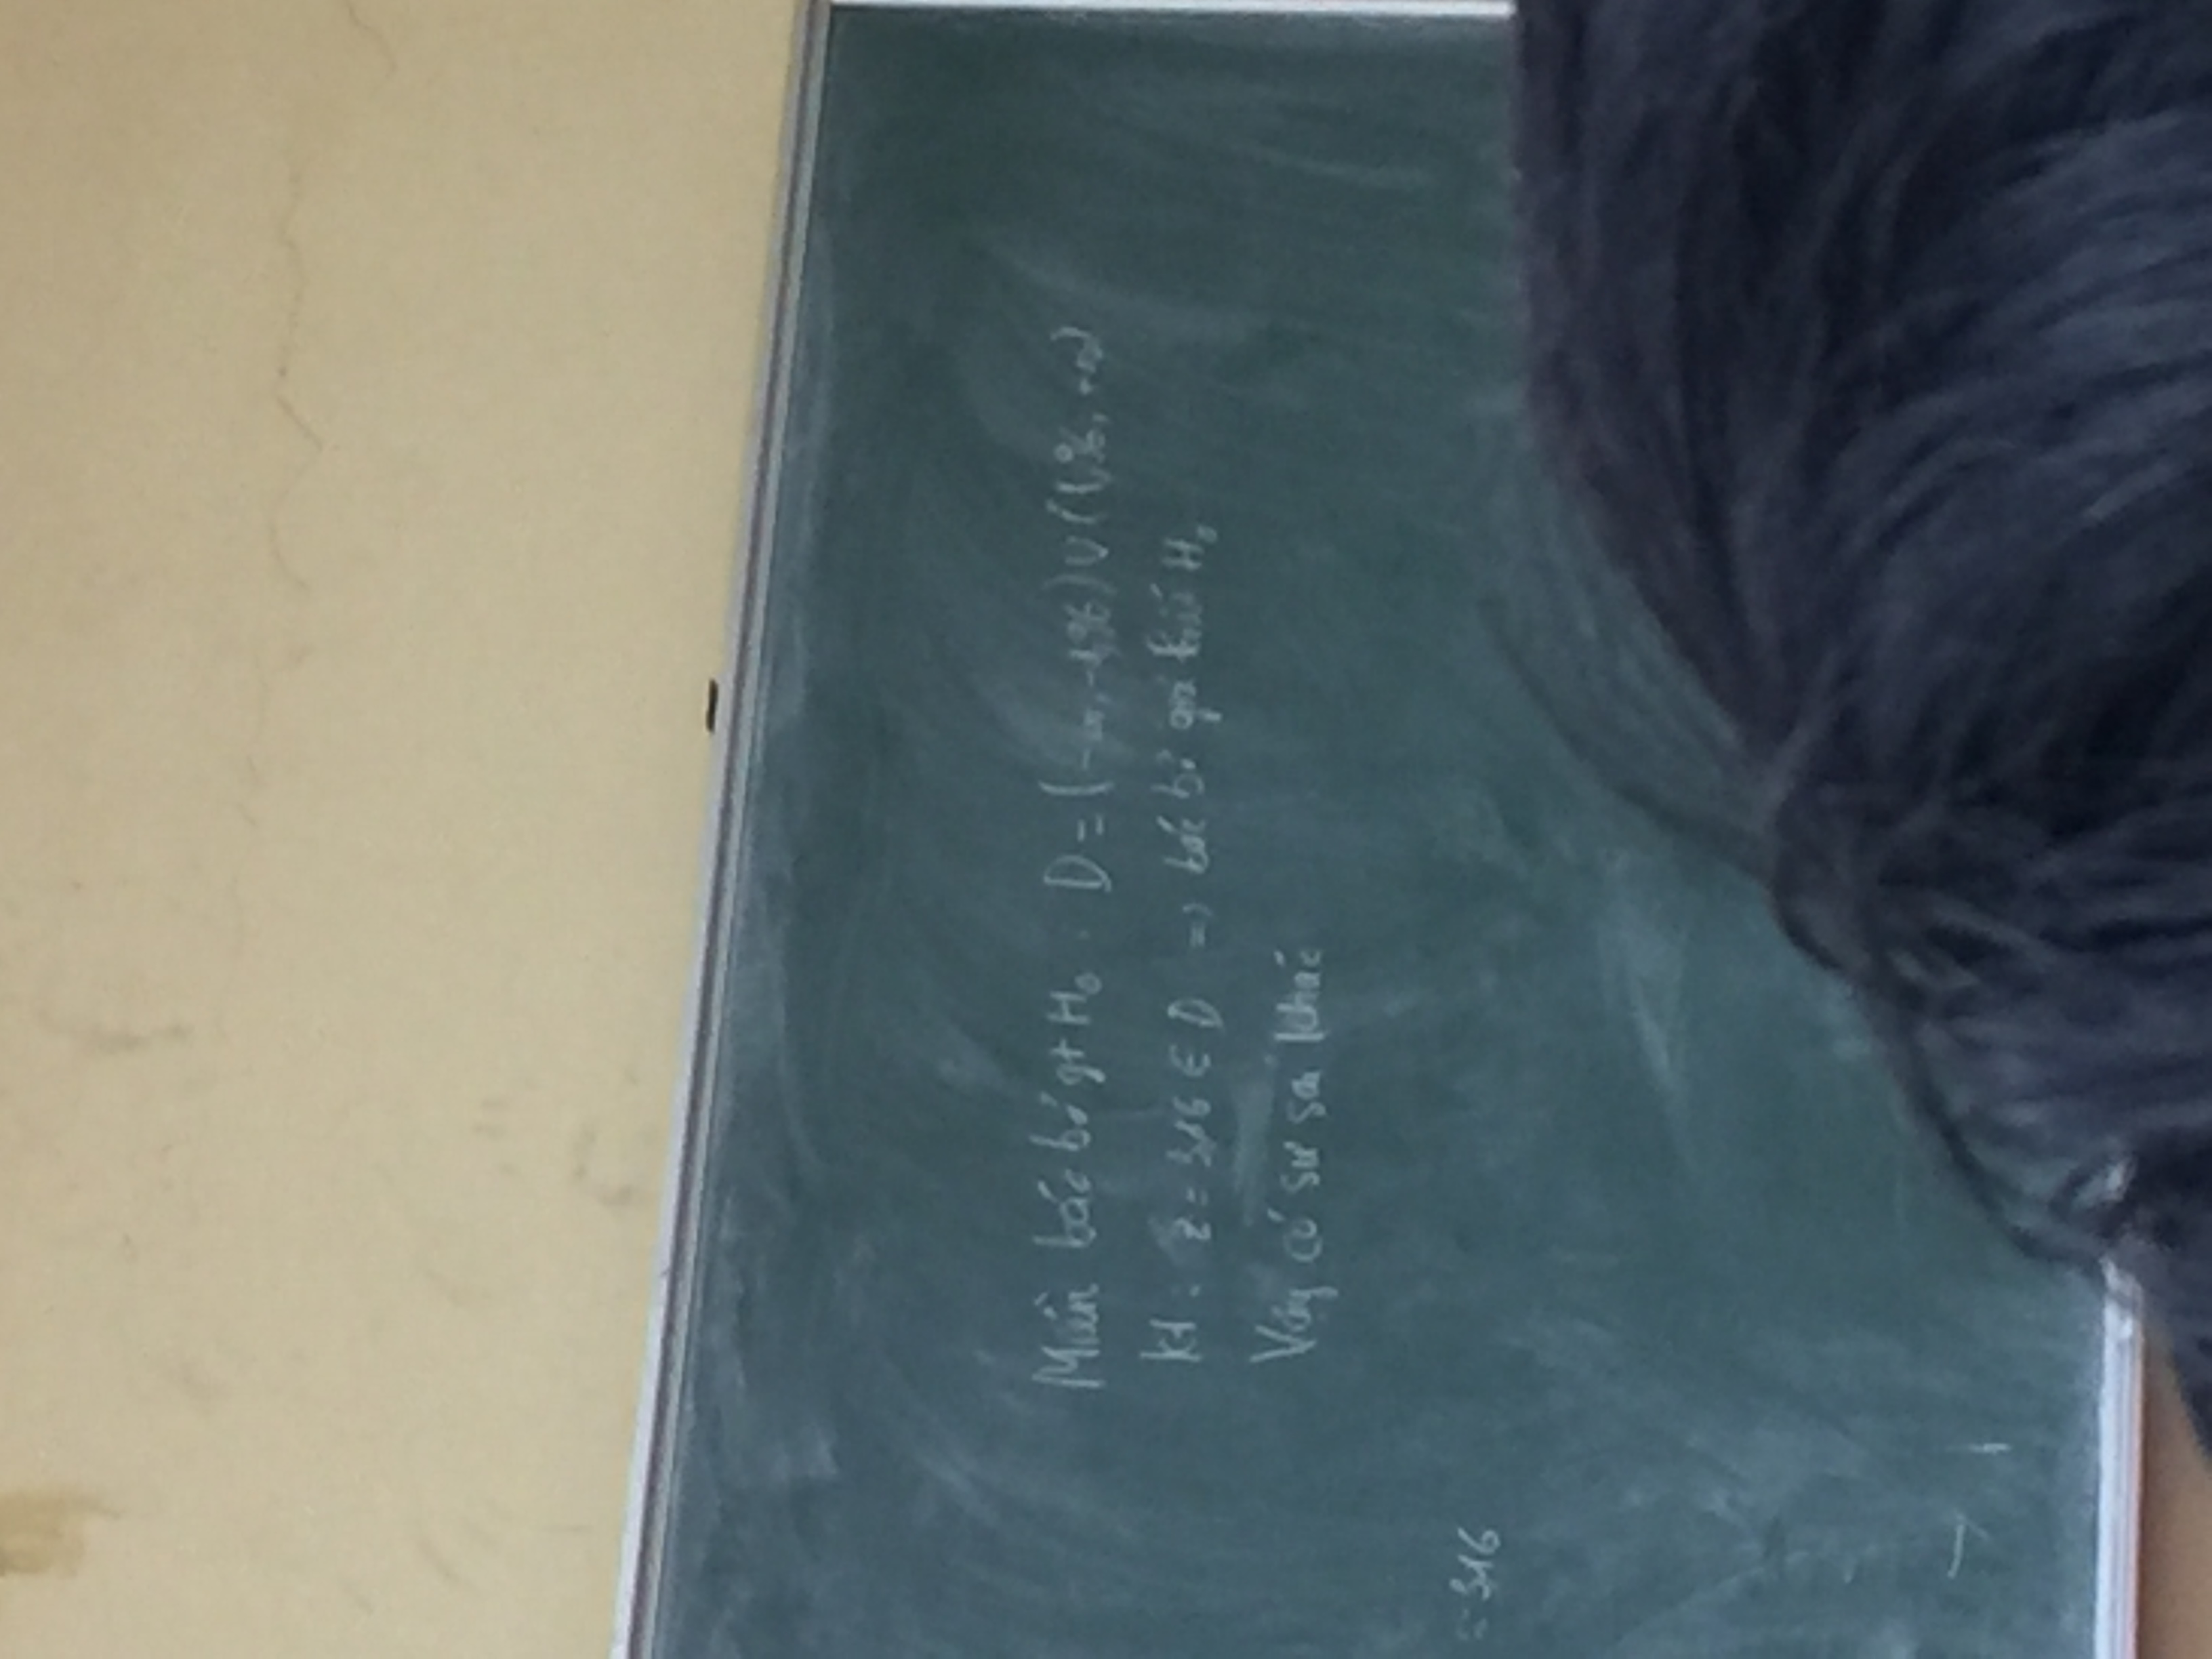 Miền bác bỏ gt H₀: D = (-∞, -1,96) ∪ (1,96, +∞)
kl: z = 3,16 ∈ D => bác bỏ giả thiết H₀
Vậy có sự sai khác
≈ 3,16